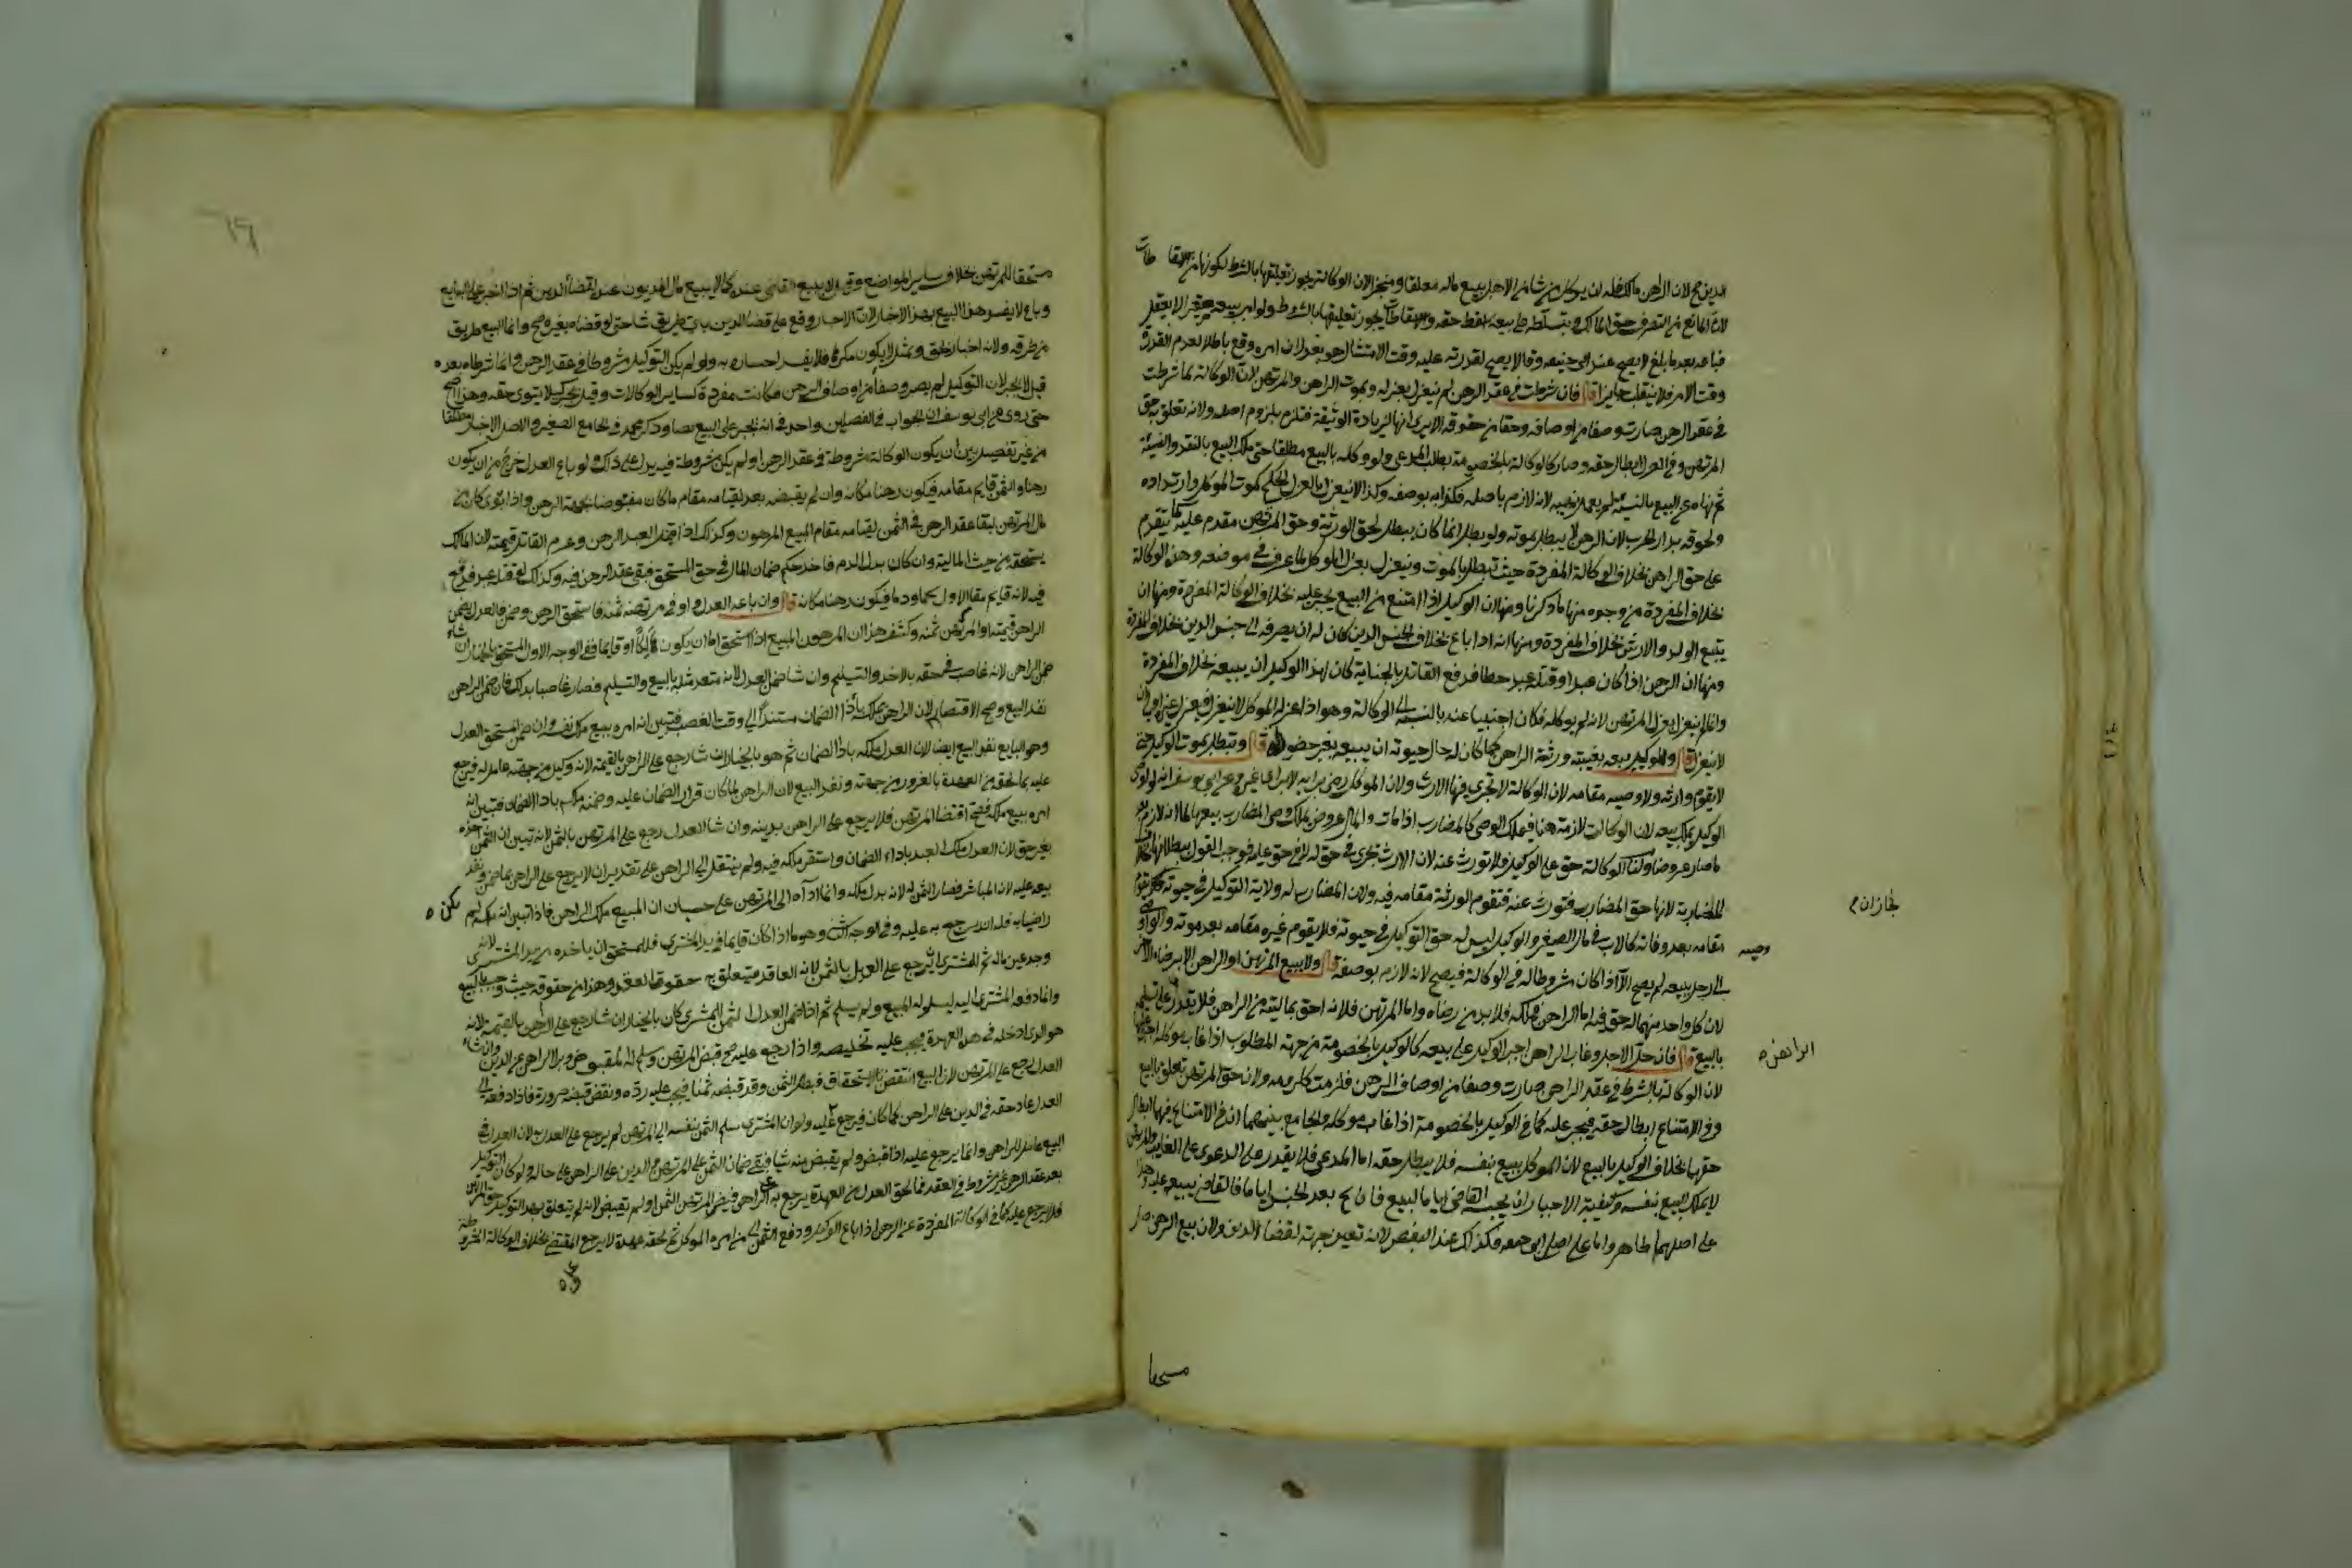 الدين صح لان الراهن مالك فله ان يوكل من شا من الاهل ببيع ماله معلقا ومنجزا لان الوكالة يجوز تعليقها بالشرط لكونها من الاسقاطات
لان المانع من التصرف حق المالك وبتسليطه على بيعه اسقط حقه والاسقاطات يجوز تعليقها بالشرط ولو امر ببيعه صغيرا لا يعقل
فباعه بعد ما بلغ لا يصح عند ابي حنيفه وقالا يصح لقدرته عليه وقت الامتثال هو يقول ان امره وقع باطلا لعدم القدرة
وقت الامر فلا ينقلب جايزا قال فان شرطت في عقد الرهن لم ينعزل بعزله وبموت الراهن والمرتهن لان الوكالة لما شرطت
في عقد الرهن صارت وصفا من اوصافه وحقا من حقوقه الا يرى انها لزيادة الوثيقة فتلزم بلزوم اصله ولانه تعلق به حق
المرتهن وفي العزل ابطال حقه وصار كالوكالة بالخصومة بطلب المدعي ولو وكله بالبيع مطلقا حتى ملك البيع بالنقد والنسيئة
ثم نهاه عن البيع بالنسيئة لم يعمل نهيه لانه لازم باصله فكذا بوصفه وكذا لا ينعزل بالعزل الحكمي كموت الموكل وارتداده
ولحوقه بدار الحرب لان الرهن لا يبطل بموته ولو بطل انما كان يبطل لحق الورثة وحق المرتهن مقدم عليه كما يتقدم
على حق الراهن بخلاف الوكالة المفردة حيث تبطل بالموت وينعزل بعزل الموكل لما عرف في موضعه وهذه الوكالة
تخالف المفردة من وجوه منها ما ذكرنا ومنها ان الوكيل اذا امتنع من البيع يجبر عليه بخلاف الوكالة المفردة ومنها ان
يتبع الولد والارش بخلاف المفردة ومنها انه اذا باع بخلاف جنس الدين كان له ان يصرفه الى جنس الدين بخلاف المفردة
ومنها ان الرهن اذا كان عبدا وقتله عبد خطا فدفع القاتل بالجناية كان لهذا الوكيل ان يبيعه بخلاف المفردة
وانما لم ينعزل بعزل المرتهن لانه لم يوكله فكان اجنبيا عنه بالنسبة الى الوكالة وهو اذا عزله الموكل لا ينعزل فبعزل غيره اولى ان
لا ينعزل قال وللوكيل بيعه بغيبة ورثة الراهن كما كان له حال حيوته ان يبيعه بغير حضوره قال وتبطل بموت الوكيل حتى
لا يقوم وارثه ولا وصيه مقامه لان الوكالة لا تجري فيها الارث ولان الموكل رضي برايه لا براي غيره وعن ابي يوسف انه لوصي
الوكيل يملك بيعه لان الوكالة لازمة هنا فيملك الوصي كالمضارب اذا مات والمال عروض يملك وصي المضارب بيعها لما انه لازم بعد
ما صار عروضا ولنا ان الوكالة حق على الوكيل فلا تورث عنه لان الارث تجري في حق له لا في حق عليه فوجب القول ببطلانها بخلاف
المضاربة لانها حق المضارب فتورث عنه فتقوم الورثة مقامه فيه ولان المضارب له ولاية التوكيل في حيوته فجاز ان يقوم
وصيه
مقامه بعد وفاته كالاب في مال الصغير والوكيل ليس له حق التوكيل في حيوته فلا يقوم غيره مقامه بعد موته
الى رجل ببيعه لم يصح الا اذا كان مشروطا له في الوكالة فيصح لانه لازم بوصفه قال ولا يبيع المرتهن او الراهن الا برضاء الاخر
لان كل واحد منهما له حق فيه اما الراهن فملكه فلا بد من رضاه واما المرتهن فلانه احق بماليته من الراهن فلا يقدر على تسليمه
بالبيع قال فان حل الاجل وغاب الراهن اجبر الوكيل على بيعه كالوكيل بالخصومة من جهة المطلوب اذا غاب موكله اجبر عليها
لان الوكالة بالشرط في عقد الراهن صارت وصفا من اوصاف الرهن فلزمت كلزومه ولان حق المرتهن تعلق بالبيع
وفي الامتناع ابطال حقه فيجبر عليه كما في الوكيل بالخصومة اذا غاب موكله والجامع بينهما ان في الامتناع فيهما ابطال
حقهما بخلاف الوكيل بالبيع لان الموكل يبيع بنفسه فلا يبطل حقه اما المدعي فلا يقدر على الدعوى على الغايب والمرتهن
لا يملك البيع بنفسه وكيفية الاجبار ان يحبسه القاضي اياما ليبيع فان لج بعد الحبس اياما فالقاضي يبيعه عليه وهذا
على اصلهما ظاهر واما على اصل ابي حنيفه فكذلك عند البعض لانه تعين جهة لقضا الدين ولان بيع الرهن صار
مستحقا
مستحقا للمرتهن بخلاف ساير المواضع وقيل لا يبيع القاضي عنده كما لا يبيع مال المديون عنده لقضا الدين ثم اذا اجبر على البيع
وباع لا يفسد هذا البيع بهذا الاجبار لان الاجبار وقع على قضا الدين باي طريق شا حتى لو قضاه بغيره صح وانما البيع طريق
من طرقه ولانه اجبار بحق وبمثله لا يكون مكرها فلا يفسد اجباره به ولو لم يكن التوكيل مشروطا في عقد الرهن وانما شرطاه بعده
قيل لا يجبر لان التوكيل لم يصر وصفا من اوصاف الرهن فكانت مفردة كساير الوكالات وقيل يجبر كيلا يتوى حقه وهذا اصح
حتى روى عن ابي يوسف ان الجواب في الفصلين واحد في انه يجبر على البيع نصا وذكر محمد في الجامع الصغير والاصل الاجبار مطلقا
من غير تفصيل بين ان يكون الوكالة مشروطة في عقد الرهن او لم يكن مشروطة فيه يدل على ذلك ولو باع العدل خرج من ان يكون
رهنا والثمن قايم مقامه فيكون رهنا مكانه وان لم يقبض بعد لقيامه مقام ما كان مقبوضا بجهة الرهن واذا توى كان من
مال المرتهن لبقا عقد الرهن في الثمن لقيامه مقام المبيع المرهون وكذلك اذا قتل العبد الرهن وغرم القاتل قيمته لان المالك
يستحقه من حيث المالية وان كان بدل الدم فاخذ حكم ضمان المال في حق المستحق فبقي عقد الرهن فيه وكذلك لو قتله عبد فدفع
فيه لانه قايم مقام الاول لحما ودما فيكون رهنا مكانه قال وان باعه العدل واوفى مرتهنه ثمنه فاستحق الرهن وضمن فالعدل يضمن
الراهن قيمته او المرتهن ثمنه وكشف هذا ان المرهون المبيع اذا استحق اما ان يكون هالكا او قايما ففي الوجه الاول المستحق بالخيار ان شاء
ضمن الراهن لانه غاصب في حقه بالاخذ والتسليم وان شا ضمن العدل لانه متعد مثله بالبيع والتسليم فصار غاصبا بذلك فان ضمن الراهن
نفذ البيع وصح الاقتضا لان الراهن ملكه باداء الضمان مستندا الى وقت الغصب فتبين انه امره ببيع ملك نفسه وان ضمن المستحق العدل
وهو البايع نفذ البيع ايضا لان العدل ملكه باداء الضمان ثم هو بالخيار ان شا رجع على الراهن بالقيمة لانه وكيل من جهته عامل له فيرجع
عليه بما لحقه من العهدة بالغرور من جهته ونفذ البيع لان الراهن لما كان قرار الضمان عليه وضمنه ملكه باداء الضمان فتبين انه
امره ببيع ملكه فصح اقتضا المرتهن فلا يرجع على الراهن بدينه وان شا العدل رجع على المرتهن بالثمن لانه تبين ان الثمن اخذه
بغير حق لان العدل ملك العبد باداء الضمان واستقر ملكه فيه ولم ينتقل الى الراهن على تقدير ان لا يرجع على الراهن بما ضمن ونفذ
بيعه عليه لانه المباشر فصار الثمن له لانه بدل ملكه وانما اداه الى المرتهن على حسبان ان المبيع ملك الراهن فاذا تبين انه ملكه لم يكن
راضيا به فله ان يرجع به عليه وفي الوجه الثاني وهو ما اذا كان قايما في يد المشتري فللمستحق ان ياخذه من يد المشتري لانه
وجد عين ماله ثم للمشتري ان يرجع على العدل بالثمن لانه العاقد فتتعلق به حقوق العقد وهذا من حقوقه حيث وجب بالبيع
وانما دفعه المشتري اليه ليسلم له المبيع ولم يسلم ثم اذا ضمن العدل الثمن للمشتري كان بالخيار ان شا رجع على الراهن بالقيمة لانه
هو الذي ادخله في هذه العهدة فيجب عليه تخليصه واذا رجع عليه صح قبض المرتهن وسلم له المقبوض وبرئ الراهن عن الدين وان شاء
العدل رجع على المرتهن لان البيع انتقض بالاستحقاق فبطل الثمن وقد قبضه ثمنا فيجب عليه رده ونقض قبضه ضرورة فاذا دفعه الى
العدل عاد حقه في الدين على الراهن كما كان فيرجع به عليه ولو ان المشتري سلم الثمن بنفسه الى المرتهن لم يرجع على العدل به لان العدل في
البيع عامل للراهن وانما يرجع عليه اذا قبض ولم يقبض منه شيا فبقي ضمان الثمن على المرتهن والدين على الراهن على حاله ولو كان التوكيل
بعد عقد الرهن غير مشروط في العقد فما لحق العدل من العهدة يرجع به على الراهن قبض المرتهن الثمن او لم يقبض لانه لم يتعلق بهذا التوكيل حق المرتهن
فلا يرجع عليه كما في الوكالة المفردة عن الرهن اذا باع الوكيل ودفع الثمن الى من امره الموكل ثم لحقه عهدة لا يرجع المقتضي بخلاف الوكالة المشروطة